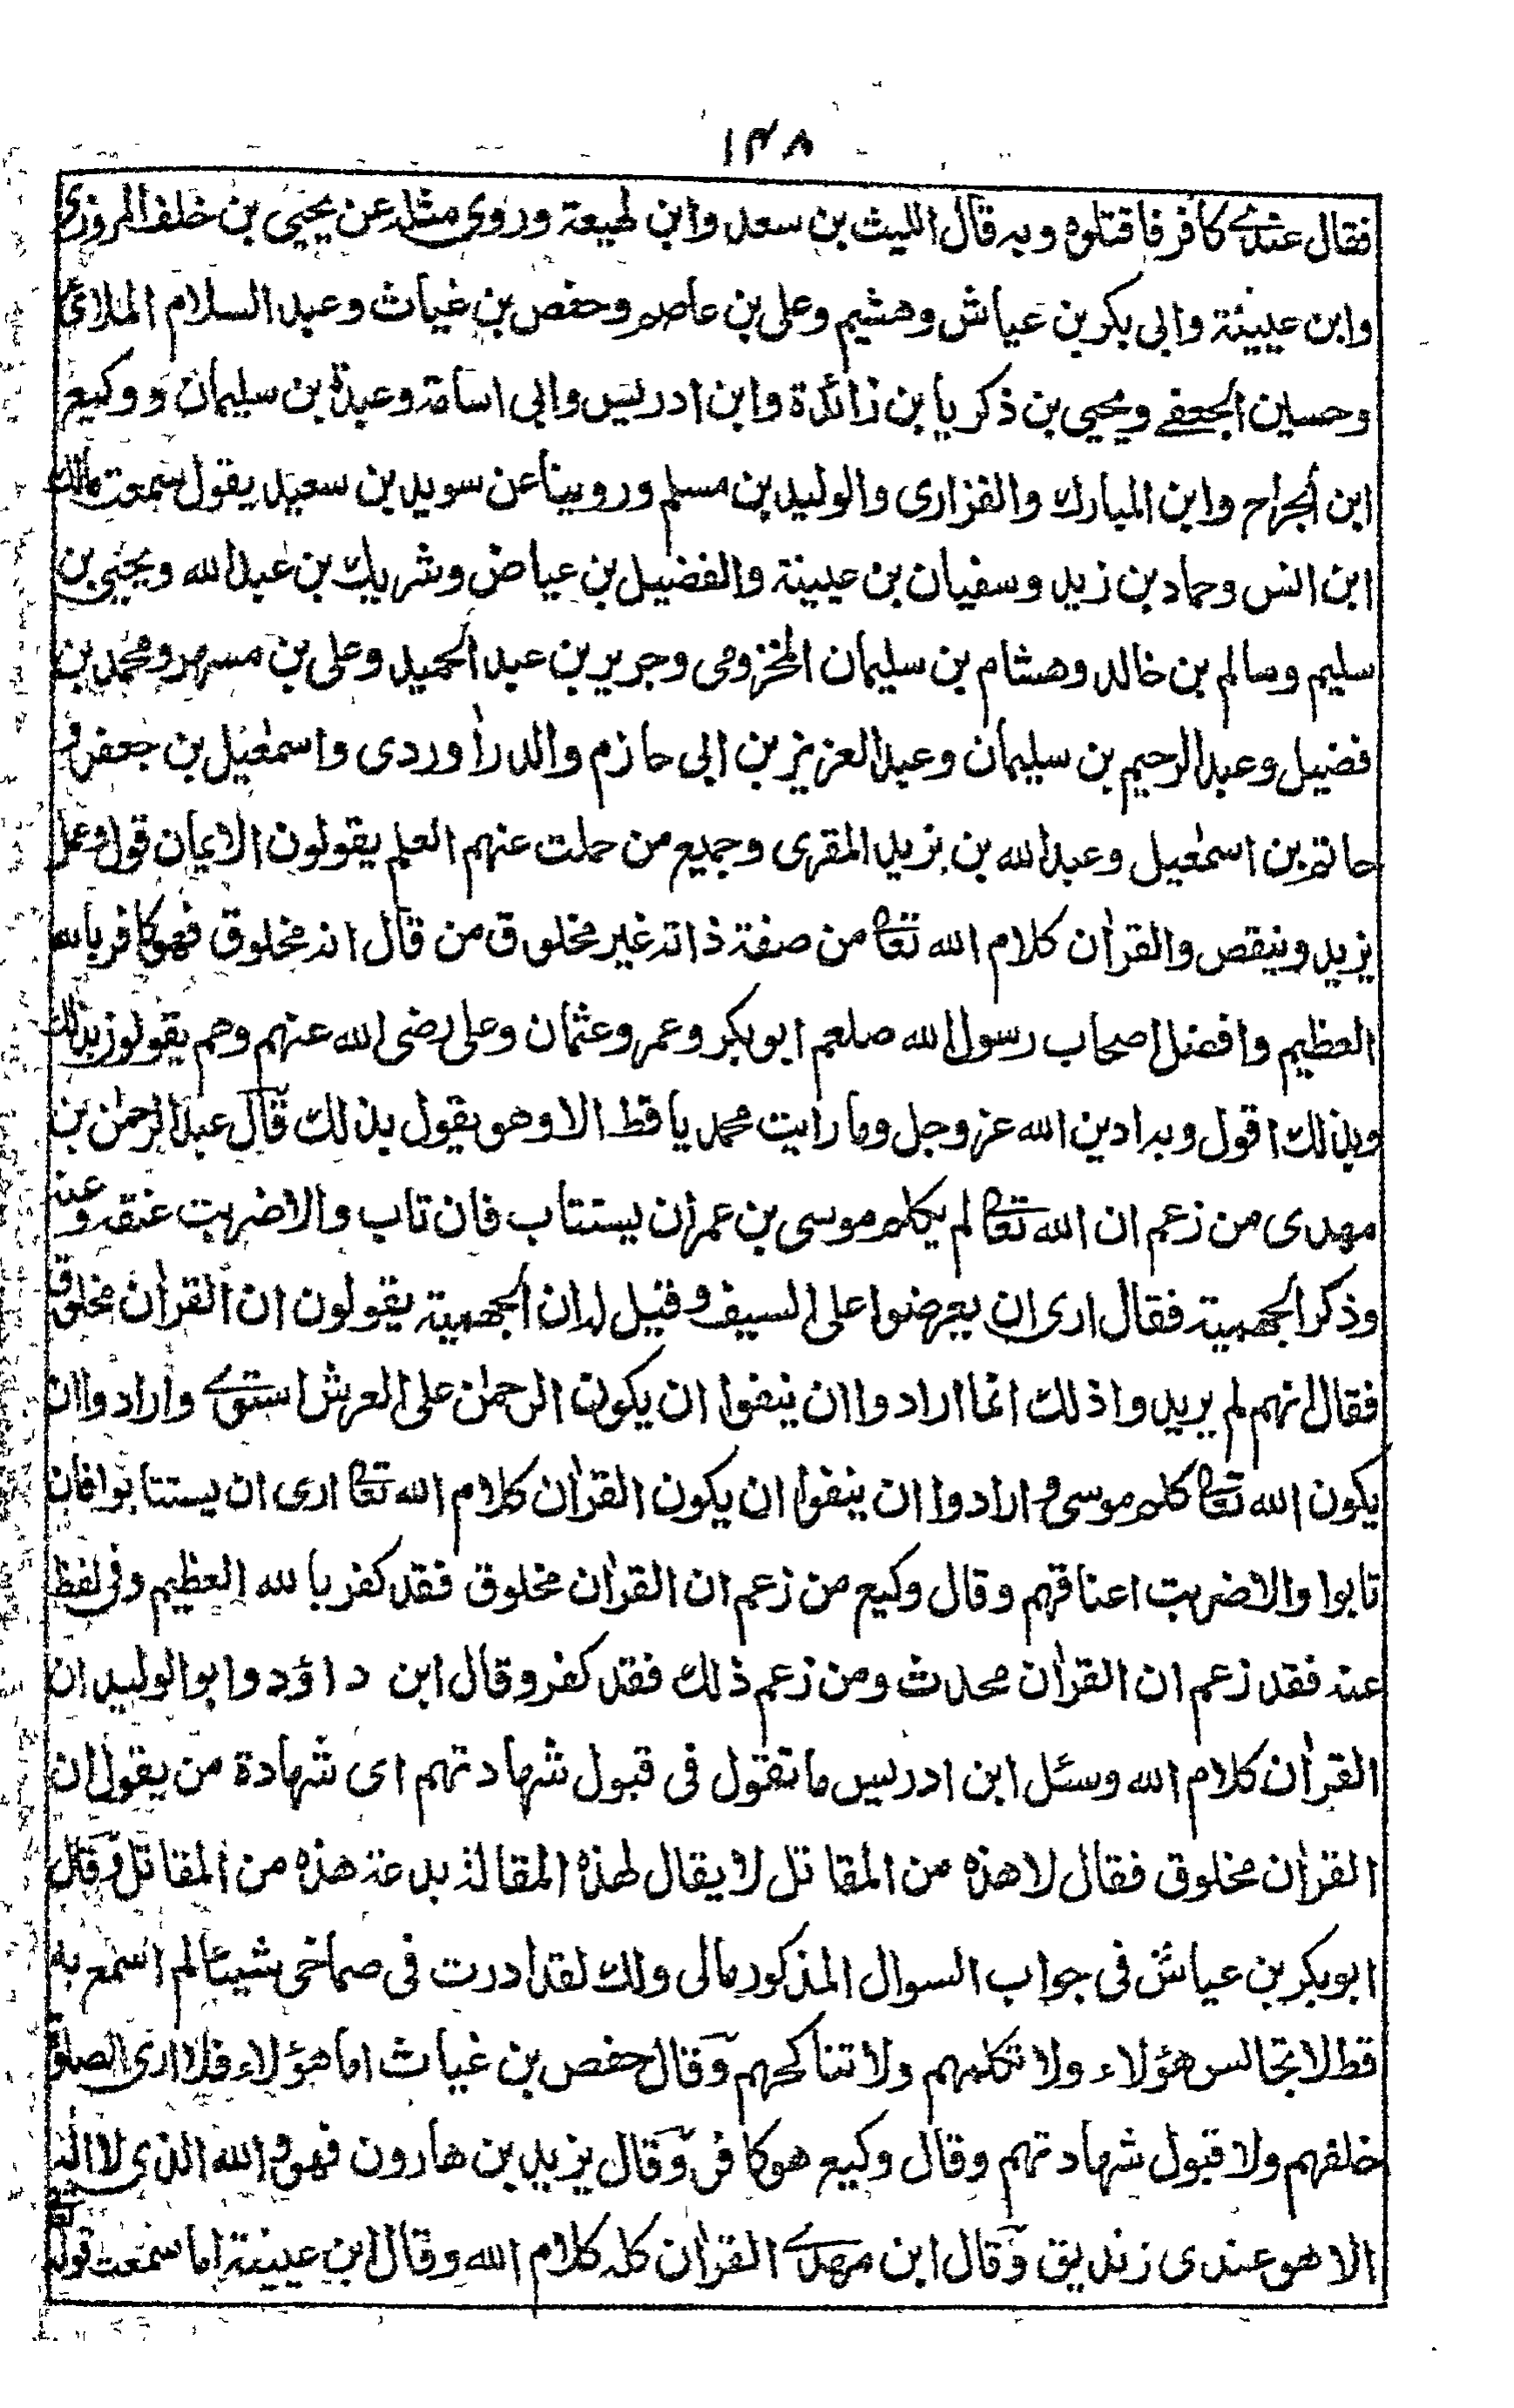 ١٣٨
فقال عندے كافر فاقتلوه وبه قال الليث بن سعد وابن لهيعة وروى مثله عن يحيى بن خلف المروزى
وابن عيينة وابى بكر بن عياش وهشيم وعلى بن عاصم وحفص بن غياث وعبد السلام الملائى
وحسين الجعفے ويحيى بن ذكريا بن زائدة وابن ادريس وابى اسامة وعبدة بن سليمان ووكيع
ابن الجراح وابن المبارك والفزارى والوليد بن مسلم وروينا عن سويد بن سعيد يقول سمعت مالك
ابن انس وحماد بن زيد وسفيان بن عيينة والفضيل بن عياض وشريك بن عبد الله ويحيى بن
سليم وسالم بن خالد وهشام بن سليمان المخزومى وجرير بن عبد الحميد وعلى بن مسهر ومحمد بن
فضيل وعبد الرحيم بن سليمان وعبد العزيز بن ابى حازم والدراوردى واسمٰعيل بن جعفر و
حاتم بن اسمٰعيل وعبد الله بن يزيد المقرى وجميع من حملت عنهم العلم يقولون الايمان قول وعمل
يزيد وينقص والقراٰن كلام الله تعا من صفة ذاته غير مخلوق من قال انه مخلوق فهو كافر بالله
العظيم وافضل اصحاب رسول الله صلعم ابو بكر وعمر وعثمان وعلى رضى الله عنهم وهم يقولون بذلك
وبذلك اقول وبه ادين الله عز وجل وما رايت محمديا قط الا وهو يقول بذلك قال عبد الرحمٰن بن
مهدى من زعم ان الله تعا لم يكلم موسى بن عمران يستتاب فان تاب والا ضربت عنقه وعنه
وذكر الجهمية فقال ارى ان يعرضوا على السيف وقيل له ان الجهمية يقولون ان القراٰن مخلوق
فقال انهم لم يريدوا ذلك انما ارادوا ان ينفوا ان يكون الرحمٰن على العرش استوے وارادوا ان
يكون الله تعا كلم موسى وارادوا ان ينفوا ان يكون القراٰن كلام الله تعا ارى ان يستتابوا فان
تابوا والا ضربت اعناقهم وقال وكيع من زعم ان القراٰن مخلوق فقد كفر بالله العظيم وفى لفظ
عنه فقد زعم ان القراٰن محدث ومن زعم ذلك فقد كفر وقال ابن داؤد وابو الوليد ان
القراٰن كلام الله وسئل ابن ادريس ما تقول فى قبول شهادتهم اى شهادة من يقول ان
القراٰن مخلوق فقال لا هذه من المقاتل لا يقال لهذه المقالة بدعة هذه من المقاتل وقال
ابو بكر بن عياش فى جواب السوال المذكور مالى ولك لقد ادرت فى صماخى شيئا لم اسمع به
قط لا تجالس هؤلاء ولا تكلمهم ولا تناكحهم وقال حفص بن غياث اما هؤلاء فلا ارى الصلوة
خلفهم ولا قبول شهادتهم وقال وكيع هو كافر وقال يزيد بن هارون فهو والله الذى لا اله
الا هو عندى زنديق وقال ابن مهدے القراٰن كله كلام الله وقال ابن عيينة اما سمعت قوله